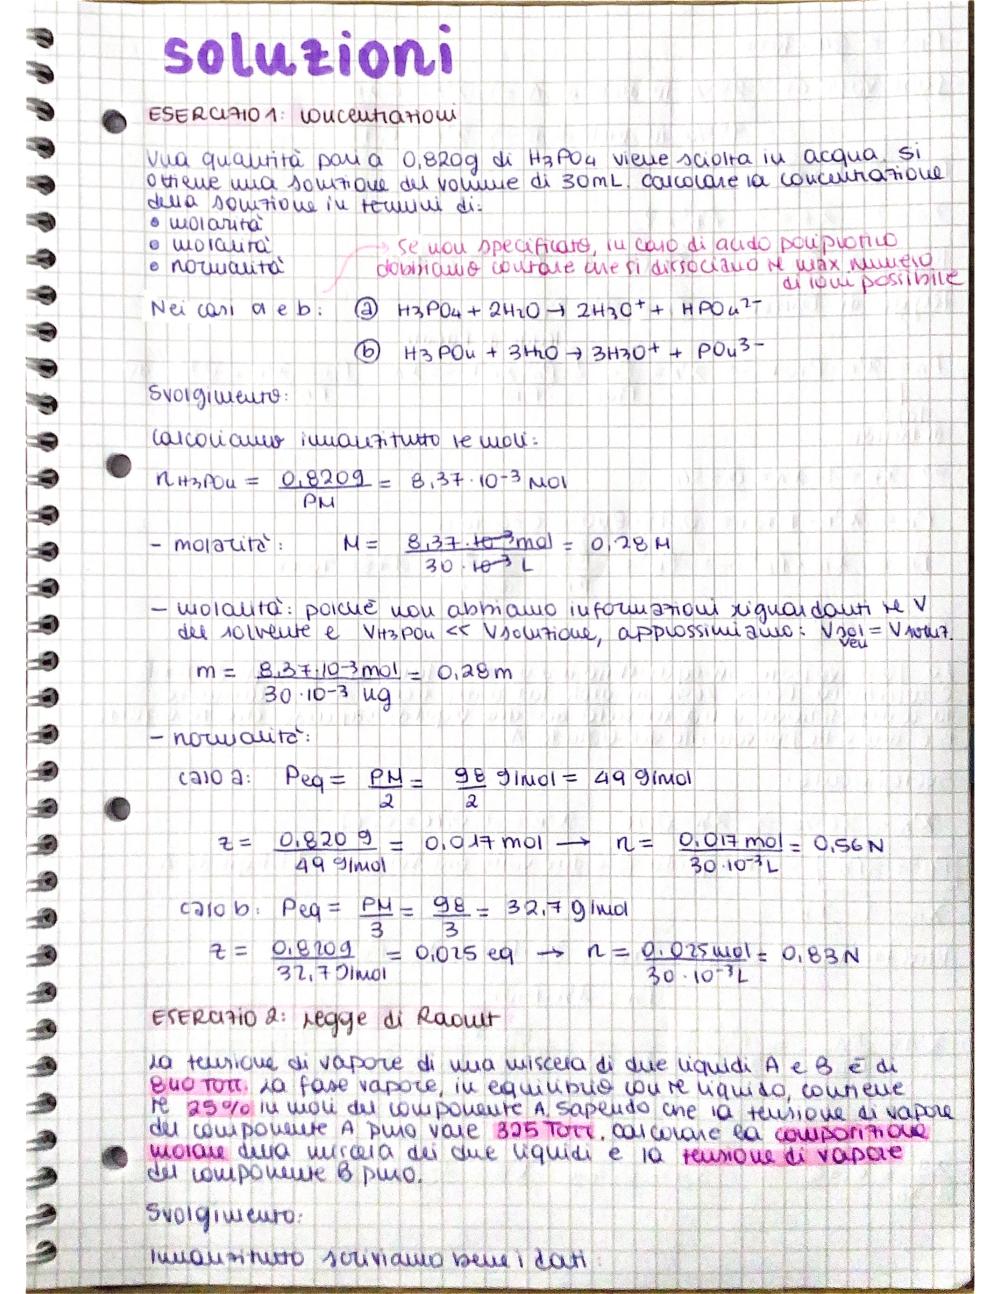 soluzioni
ESERCIZIO 1: concentrazioni
Una quantità pari a 0,820g di H3PO4 viene sciolta in acqua. Si
ottiene una soluzione del volume di 30mL. Calcolare la concentrazione
della soluzione in termini di:
• molarità
• molalità
• normalità
se non specificato, in caso di acido poliprotico
dobbiamo contare che si dissociano il max numero
di ioni possibile
Nei casi a e b: ⓐ H3PO4 + 2H2O → 2H3O+ + HPO4 2-
ⓑ H3PO4 + 3H2O → 3H3O+ + PO4 3-
Svolgimento:
Calcoliamo innanzitutto le moli:
nH3PO4 = 0,820g / PM = 8,37·10-3 mol
- molarità: M = 8,37·10-3 mol / 30·10-3 L = 0,28 M
- molalità: poiché non abbiamo informazioni riguardanti il V
del solvente e VH3PO4 << Vsoluzione, approssimiamo: Vsolven = Vsoluz.
m = 8,37·10-3 mol / 30·10-3 kg = 0,28 m
- normalità:
caso a: Peq = PM/2 = 98/2 g/mol = 49 g/mol
z = 0,820 g / 49 g/mol = 0,017 mol → n = 0,017 mol / 30·10-3 L = 0,56 N
caso b: Peq = PM/3 = 98/3 = 32,7 g/mol
z = 0,820g / 32,7 g/mol = 0,025 eq → n = 0,025 mol / 30·10-3 L = 0,83 N
ESERCIZIO 2: legge di Raoult
La tensione di vapore di una miscela di due liquidi A e B è di
840 Torr. La fase vapore, in equilibrio con il liquido, contiene
il 25% in moli del componente A. Sapendo che la tensione di vapore
del componente A puro vale 325 Torr, calcolare la composizione
molare della miscela dei due liquidi e la tensione di vapore
del componente B puro.
Svolgimento:
Innanzitutto scriviamo bene i dati: